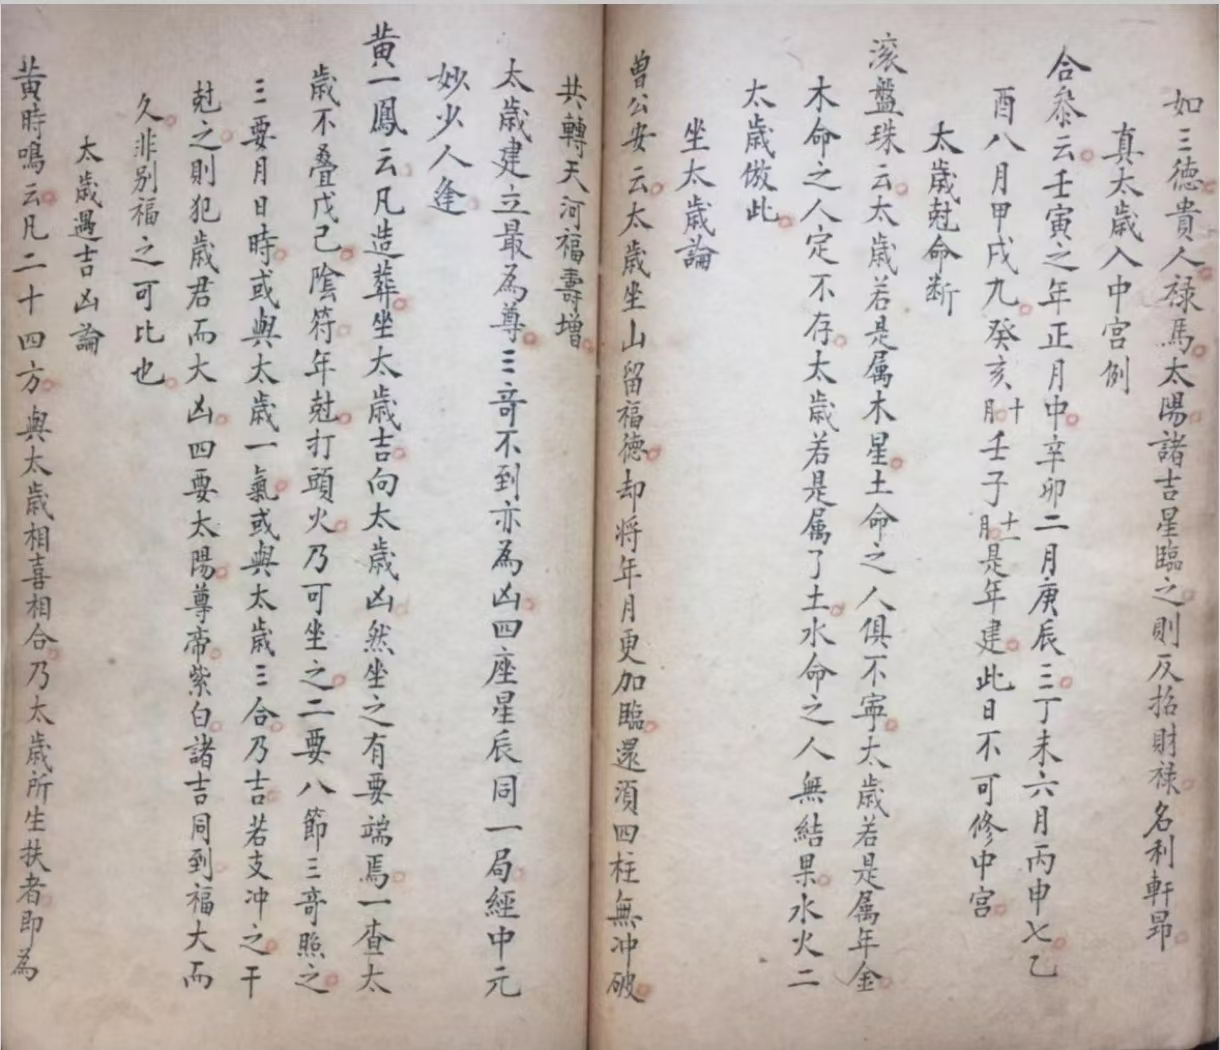 如三德貴人祿馬太陽諸吉星臨之則反招財祿名利軒昂
真太歲入中宮例
合叅云壬寅之年正月中辛卯二月庚辰三丁未六月丙申七乙
酉八月甲戌九癸亥十月壬子十一月是年建此日不可修中宮
太歲尅命断
滚盤珠云太歲若是属木星土命之人俱不寧太歲若是属年金
木命之人定不存太歲若是属了土水命之人無結果水火二
太歲倣此
坐太歲論
曾公安云太歲坐山留福德却将年月更加臨還須四柱無冲破
共轉天河福壽增
太歲建立最為尊三竒不到亦為凶四座星辰同一局經中元
妙少人逢
黄一鳳云凡造葬坐太歲吉向太歲凶然坐之有要端焉一查太
歲不叠戊己陰符年尅打頭火乃可坐之二要八節三竒照之
三要月日時或與太歲一氣或與太歲三合乃吉若支冲之干
尅之則犯歲君而大凶四要太陽尊帝紫白諸吉同到福大而
久非别福之可比也
太歲遇吉凶論
黄時鳴云凡二十四方與太歲相喜相合乃太歲所生扶者即為